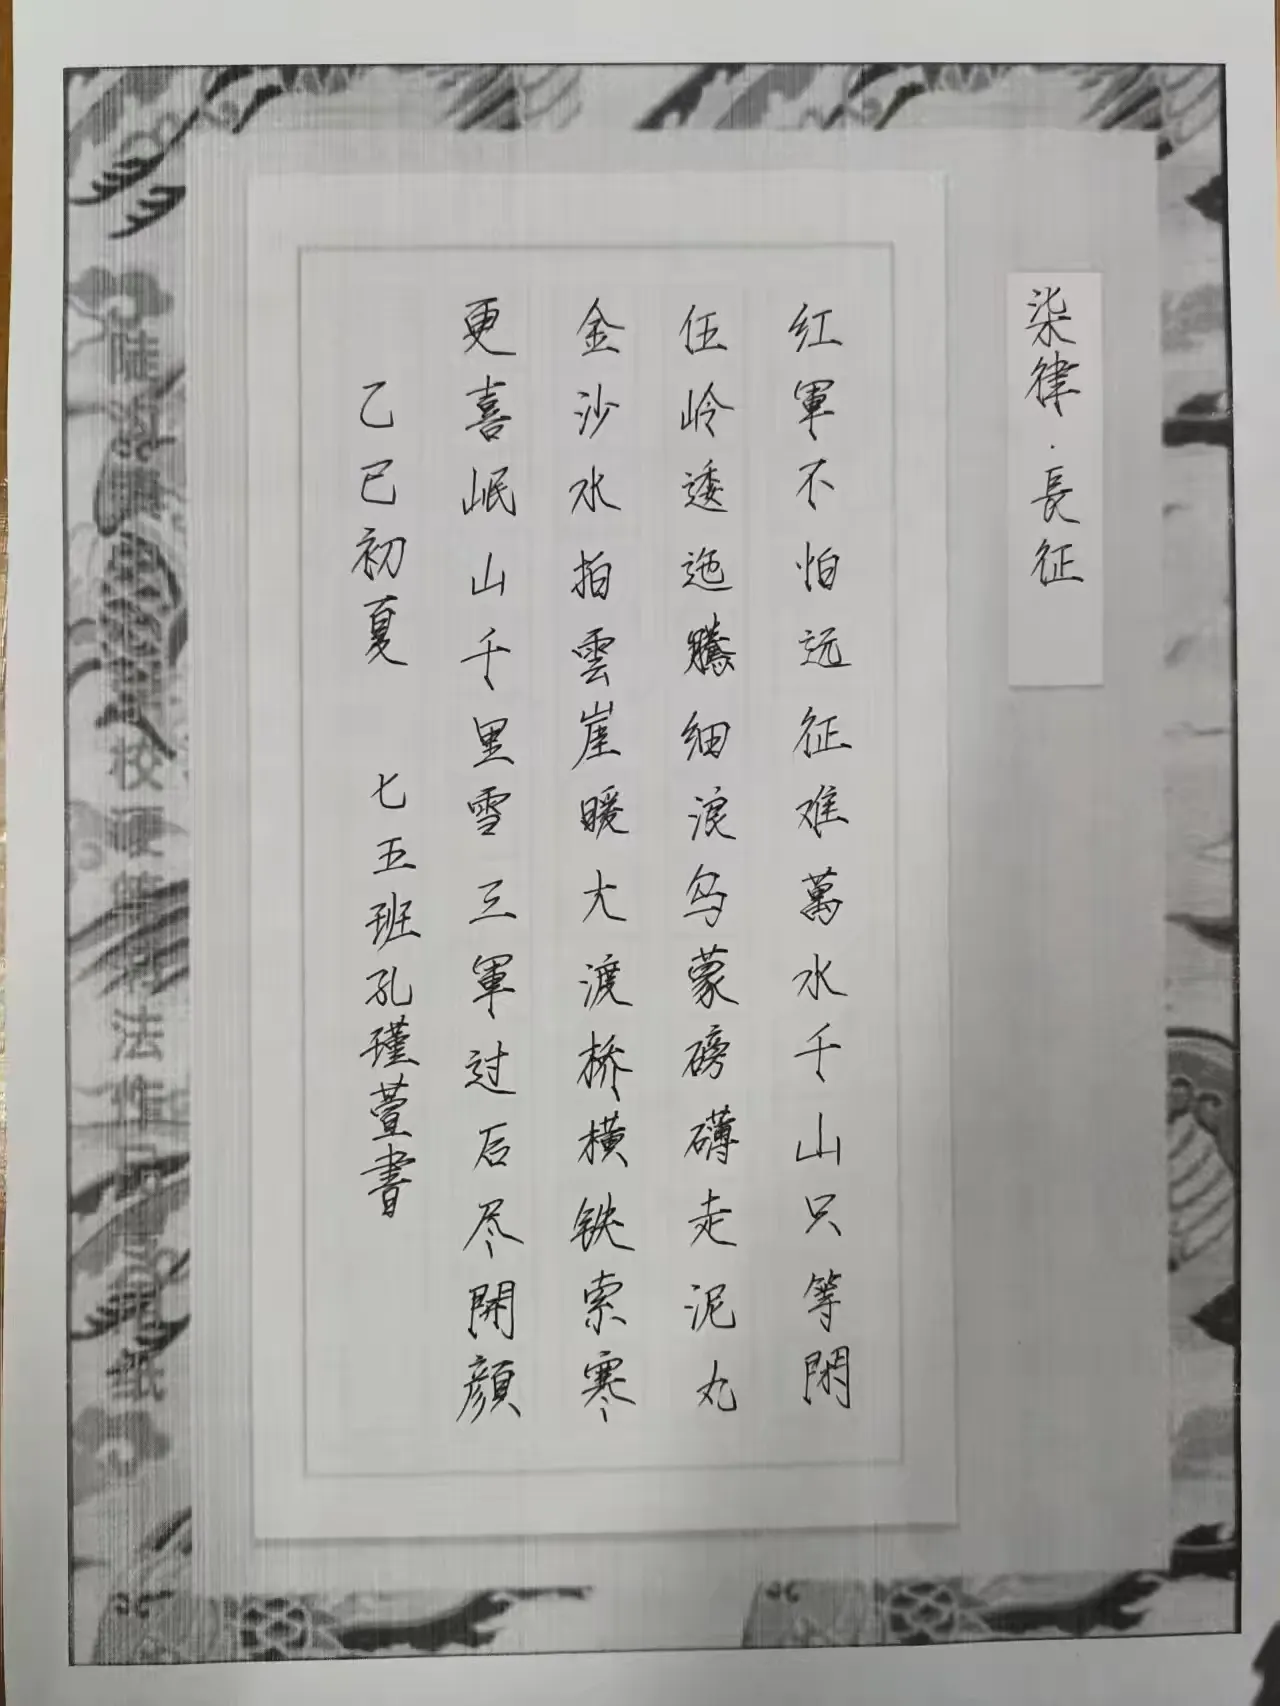 柒律·長征
红軍不怕远征难萬水千山只等閑
伍岭逶迤騰细浪乌蒙磅礴走泥丸
金沙水拍雲崖暖大渡桥横铁索寒
更喜岷山千里雪三軍过后尽開顔
乙巳初夏 七五班孔瑾萱書
校硬笔书法作品